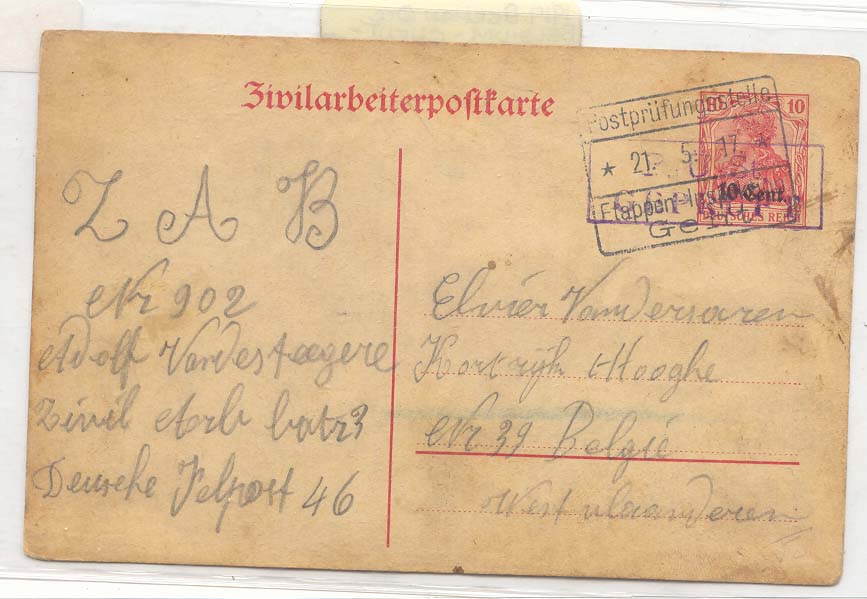 Zivilarbeiterpostkarte
Postprüfungsstelle
* 21. 5. 17. *
Etappen-Insp
Ge
10
10 Cent.
DEUTSCHES REICH
Z A B
Nr 902
Adolf Vandesteegere
Zivil Arb batr 3
Deusche Felpost 46
Elvier Vandersaren
Kortrijk Hooghe
Nr 39 België
West vlaanderen